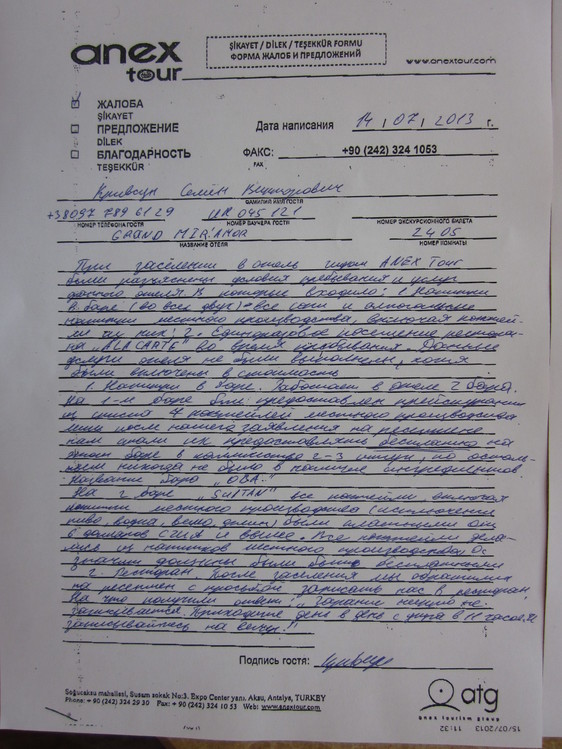 anex
tour
ŞİKAYET / DİLEK / TEŞEKKÜR FORMU
ФОРМА ЖАЛОБ И ПРЕДЛОЖЕНИЙ
www.anextour.com
ЖАЛОБА
ŞİKAYET
ПРЕДЛОЖЕНИЕ
DİLEK
БЛАГОДАРНОСТЬ
TEŞEKKÜR
Дата написания 14 / 07 / 2013 г.
ФАКС: +90 (242) 324 1053
FAX
Семён Викторович
ФАМИЛИЯ ИМЯ ГОСТЯ
+38097 789 6129 UR 045 121
НОМЕР ТЕЛЕФОНА ГОСТЯ НОМЕР ВАУЧЕРА ГОСТЯ НОМЕР ЭКСКУРСИОННОГО БИЛЕТА
GRAND MIRAMOR 2405
НАЗВАНИЕ ОТЕЛЯ НОМЕР КОМНАТЫ
При заселении в отель гидом ANEX Tour
были разъяснены условия пребывания и услуг
данного отеля. В которые входило: 1. Напитки
в баре (во всех двух) - все соки и алкогольные
напитки местного производства, включая коктей-
ли из них; 2. Одноразовое посещение рестора-
на "ALA CARTE" во время пребывания. Данные
услуги отеля не были выполнены, хотя
были включены в стоимость
1. Напитки в баре. Работает в отеле 2 бара.
На 1-м баре был предоставлен прейскурант
из списка 7 коктейлей местного производства
после нашего заявления на ресепшене
нам стали их предоставлять бесплатно на
баре в количестве 2-3 штук, по осталь-
ным никогда не было в наличие ингредиентов.
Название бара "OBA."
На 2 баре "SULTAN" все коктейли, включая
напитки местного производства (исключение
пиво, водка, вино, джин) были платными от
6 долларов США и выше. Все коктейли дела-
лись из напитков местного производства. Со
значит должны были быть бесплатными
2. Ресторан. После заселения мы обратились
на ресепшен с просьбой записать нас в ресторан.
На что получили ответ: "Заранее никто не
записывается. Приходите день в день с утра в 11 часов и
записывайтесь на вечер."
Подпись гостя:
Soğucaksu mahallesi, Susam sokak No:3. Expo Center yanı, Aksu, Antalya, TURKEY
Phone: + 90 (242) 324 29 30 Fax: + 90 (242) 324 10 53 Web: www.anextour.com
atg
anex tourism group
15/07/2013 11:32